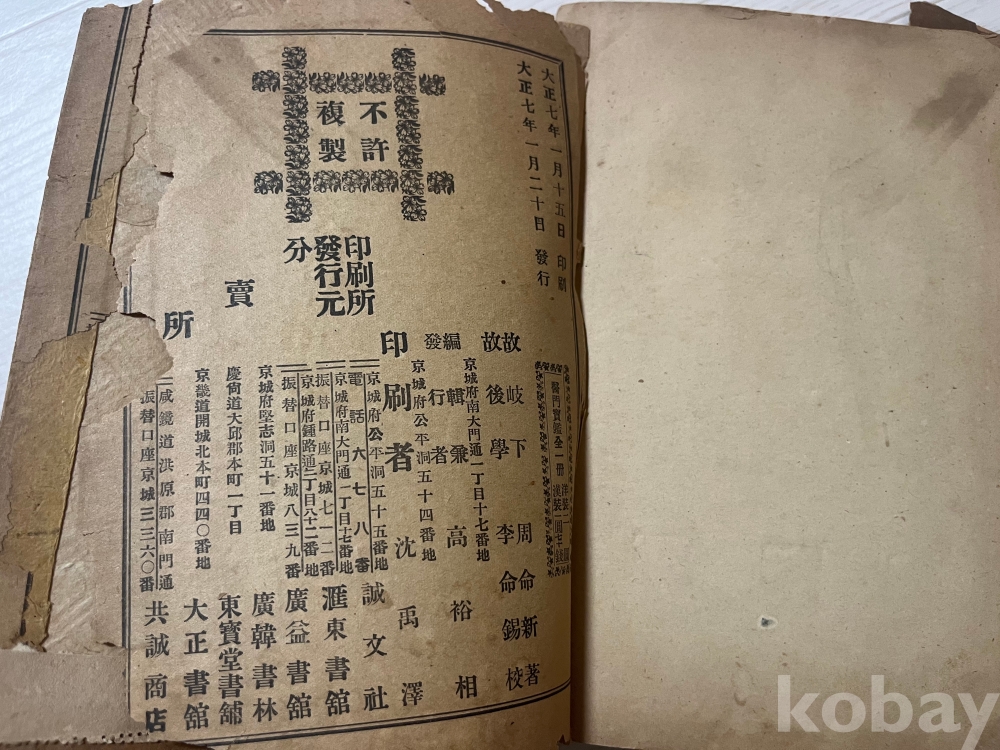 大正七年一月十五日 印刷
大正七年一月二十日 發行
不許
複製
醫門寶鑑全一冊
故 岐下 周命新 著
故 後學 李命錫 校
京城府南大門通一丁目十七番地
編輯兼
發行者 高裕相
京城府公平洞五十四番地
印刷者 沈禹澤
京城府公平洞五十五番地
印刷所 誠文社
電話六七八番
京城府南大門通一丁目十七番地
發行元 滙東書舘
振替口座京城七一二番
京城府鍾路通二丁目八十二番地
分賣所 廣益書舘
振替口座京城八三九番
京城府堅志洞五十一番地
廣韓書林
慶尙道大邱郡本町一丁目
東寶堂書舖
京畿道開城北本町四四〇番地
大正書舘
咸鏡道洪原郡南門通
共誠商店
振替口座京城三三六〇番
kobay